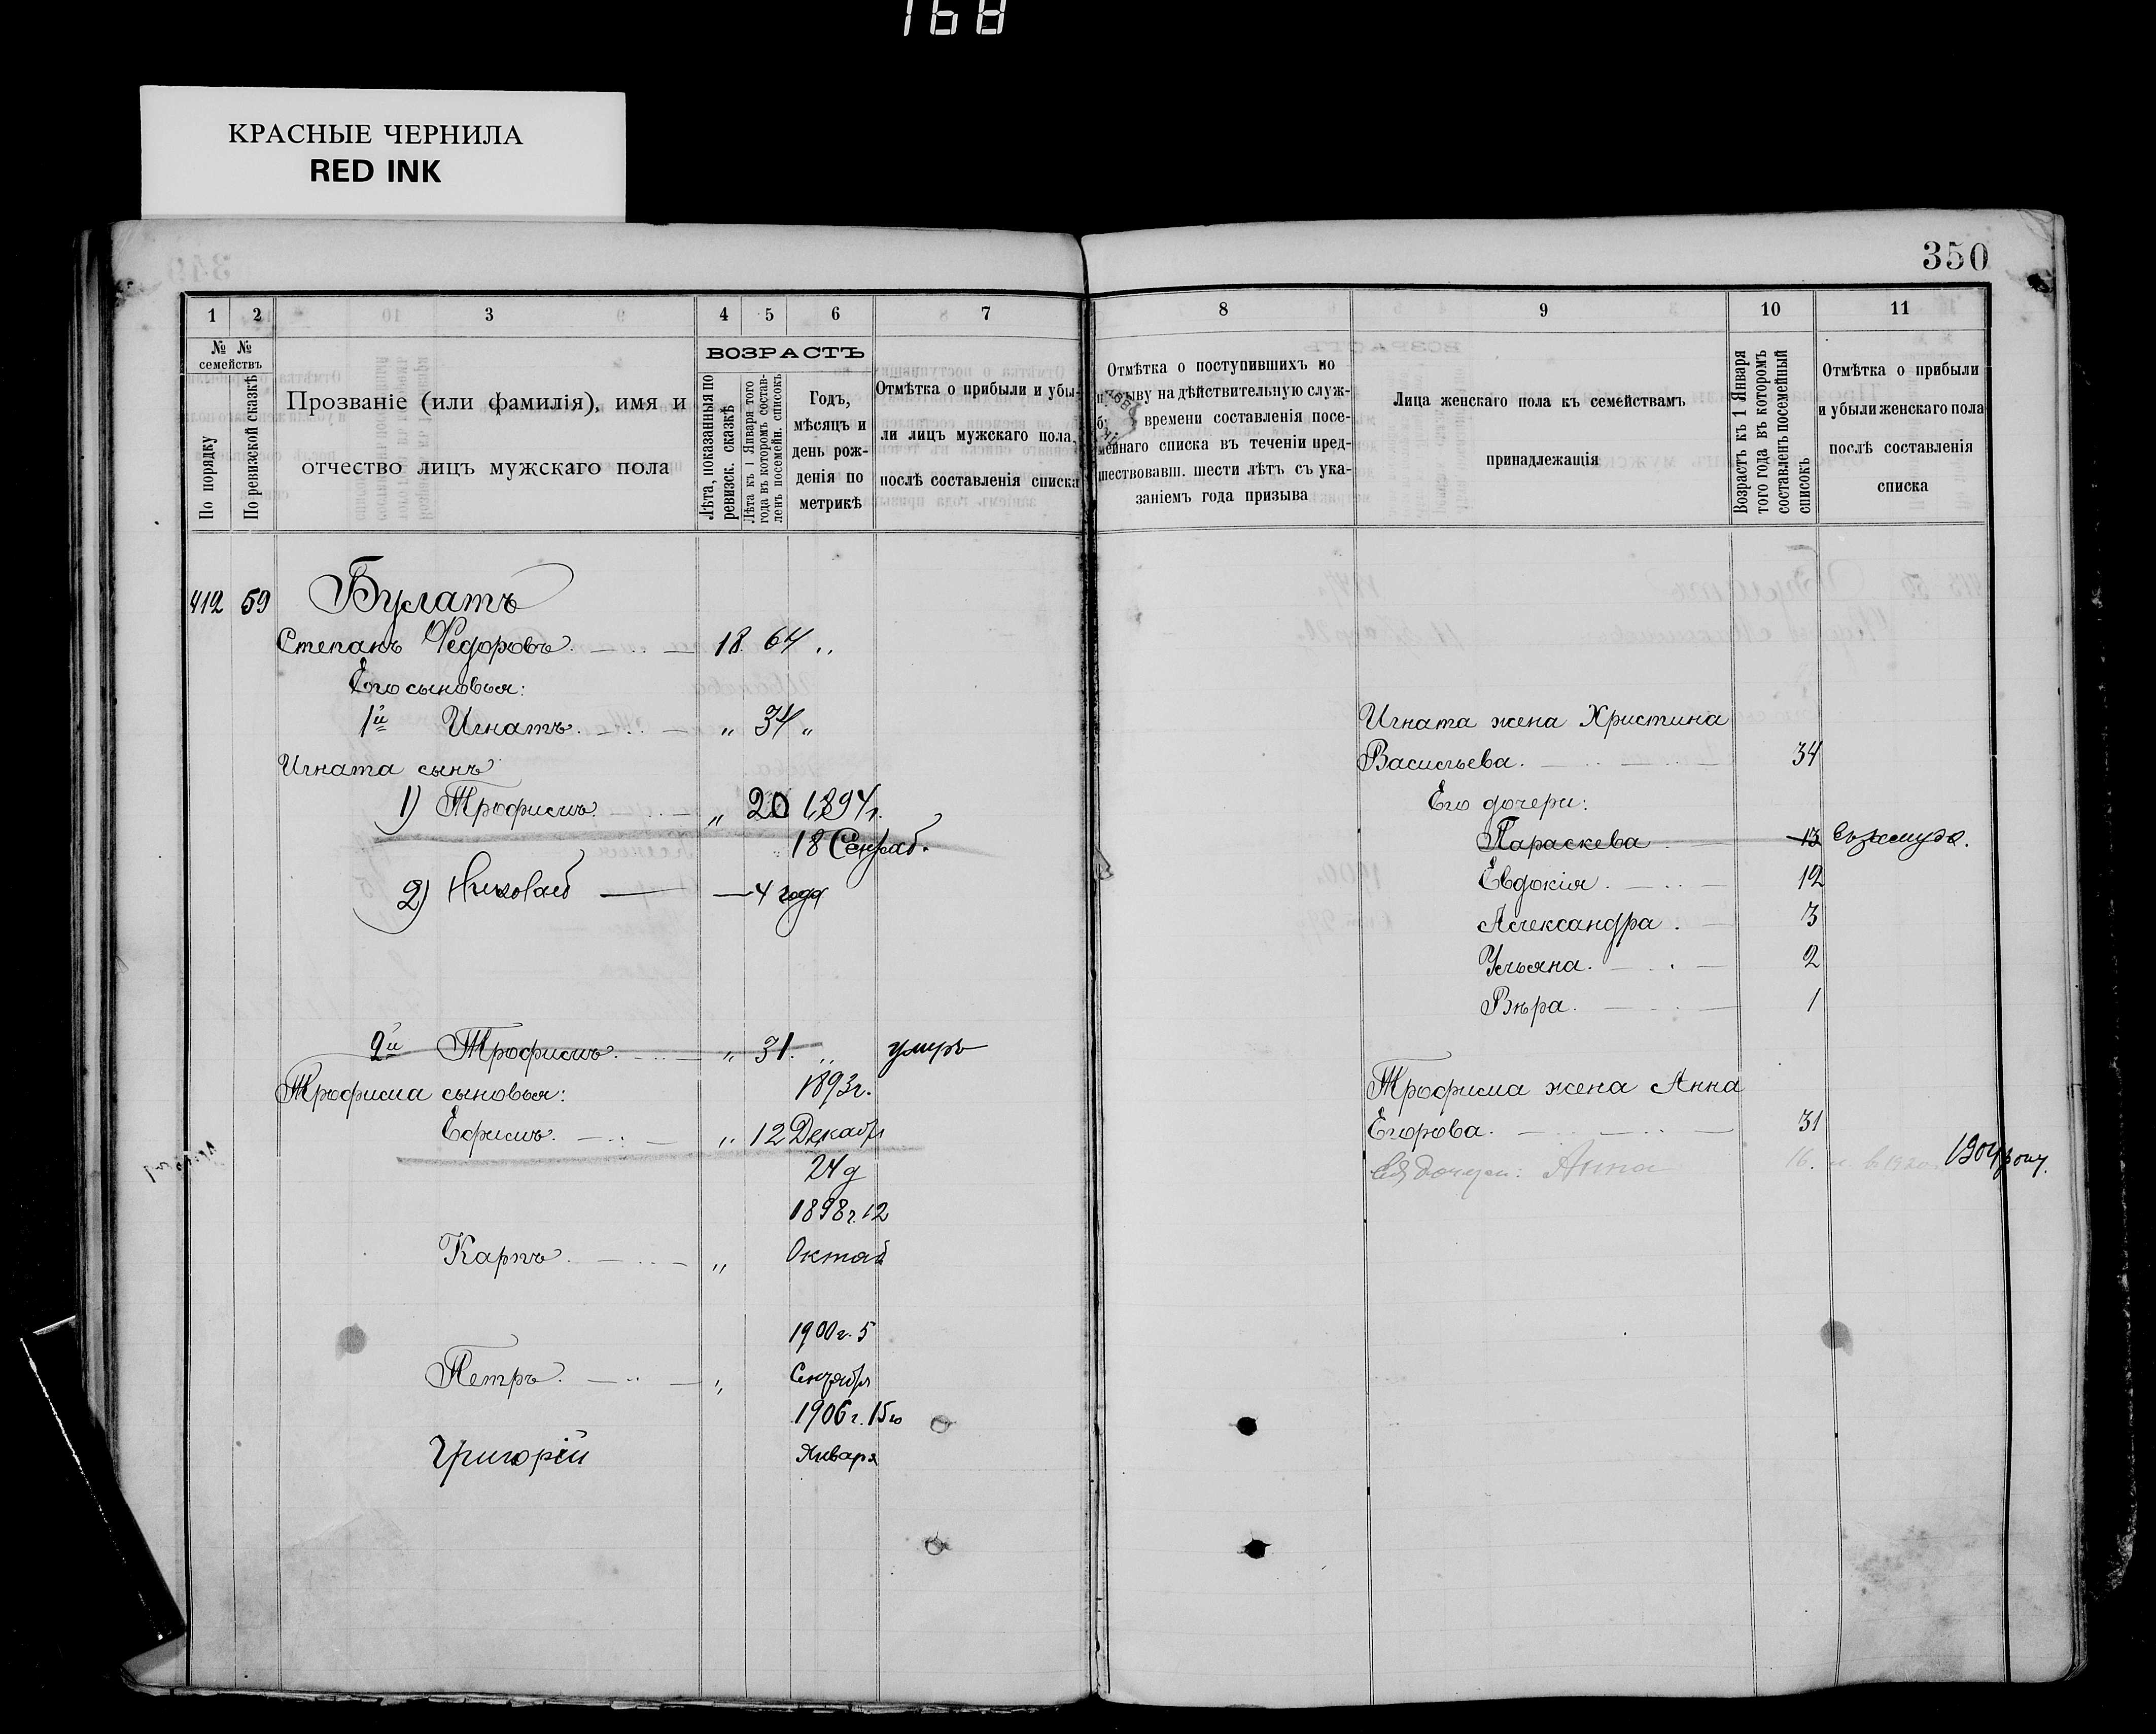 168
КРАСНЫЕ ЧЕРНИЛА
RED INK
350
1 2 3 4 5 6 7
№ № семействъ
По порядку
По ревизской сказкѣ
Прозваніе (или фамилія), имя и
отчество лицъ мужскаго пола
ВОЗРАСТЪ
Лѣта, показанныя по
ревизск. сказкѣ
Лѣта къ 1 Января того
года въ которомъ состав-
ленъ посемейн. списокъ
Годъ,
мѣсяцъ и
день рож-
денія по
метрикѣ
Отмѣтка о прибыли и убы-
ли лицъ мужскаго пола,
послѣ составленія списка
412 59 Булатъ
Степанъ Ѳедоровъ. 18 64 „
Его сыновья:
1й Игнатъ. „ 34 „
Игната сынъ
1) Трофимъ. „ 20 1894 г.
18 Сентяб.
2) Николай — 4 года
2й Трофимъ. „ 31. „ умеръ
Трофима сыновья: 1893 г.
Ефимъ. „ 12 Декабря
24 д
1898 г. 12
Карпъ. „ Октяб
1900 г. 5
Петръ. „ Сентября
1906 г. 15го
Григорій Января
8 9 10 11
Отмѣтка о поступившихъ по
ыву на дѣйствительную служ-
времени составленія посе-
мейнаго списка въ теченіи пред-
шествовавш. шести лѣтъ съ ука-
заніемъ года призыва
Лица женскаго пола къ семействамъ
принадлежащія
Возрастъ къ 1 Января
того года въ которомъ
составленъ посемейный
списокъ
Отмѣтка о прибыли
и убыли женскаго пола
послѣ составленія
списка
Игната жена Христина
Васильева. 34
Его дочери:
Параскева 13 въ замуж.
Евдокія. 12
Александра. 3
Ульяна. 2
Вѣра. 1
Трофима жена Анна
Егорова. 31
Ея дочери: Анна 16. 1904